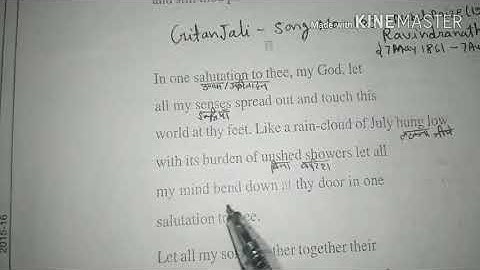 Made with KINEMASTER
GitanJali - Song
Ravindranath
(7 May 1861 - 7 Au
II
In one salutation to thee, my God, let
all my senses spread out and touch this
इन्द्रियाँ
world at thy feet. Like a rain-cloud of July hung low
with its burden of unshed showers let all
बिना
my mind bend down at thy door in one
salutation to thee.
Let all my together their
2015-16